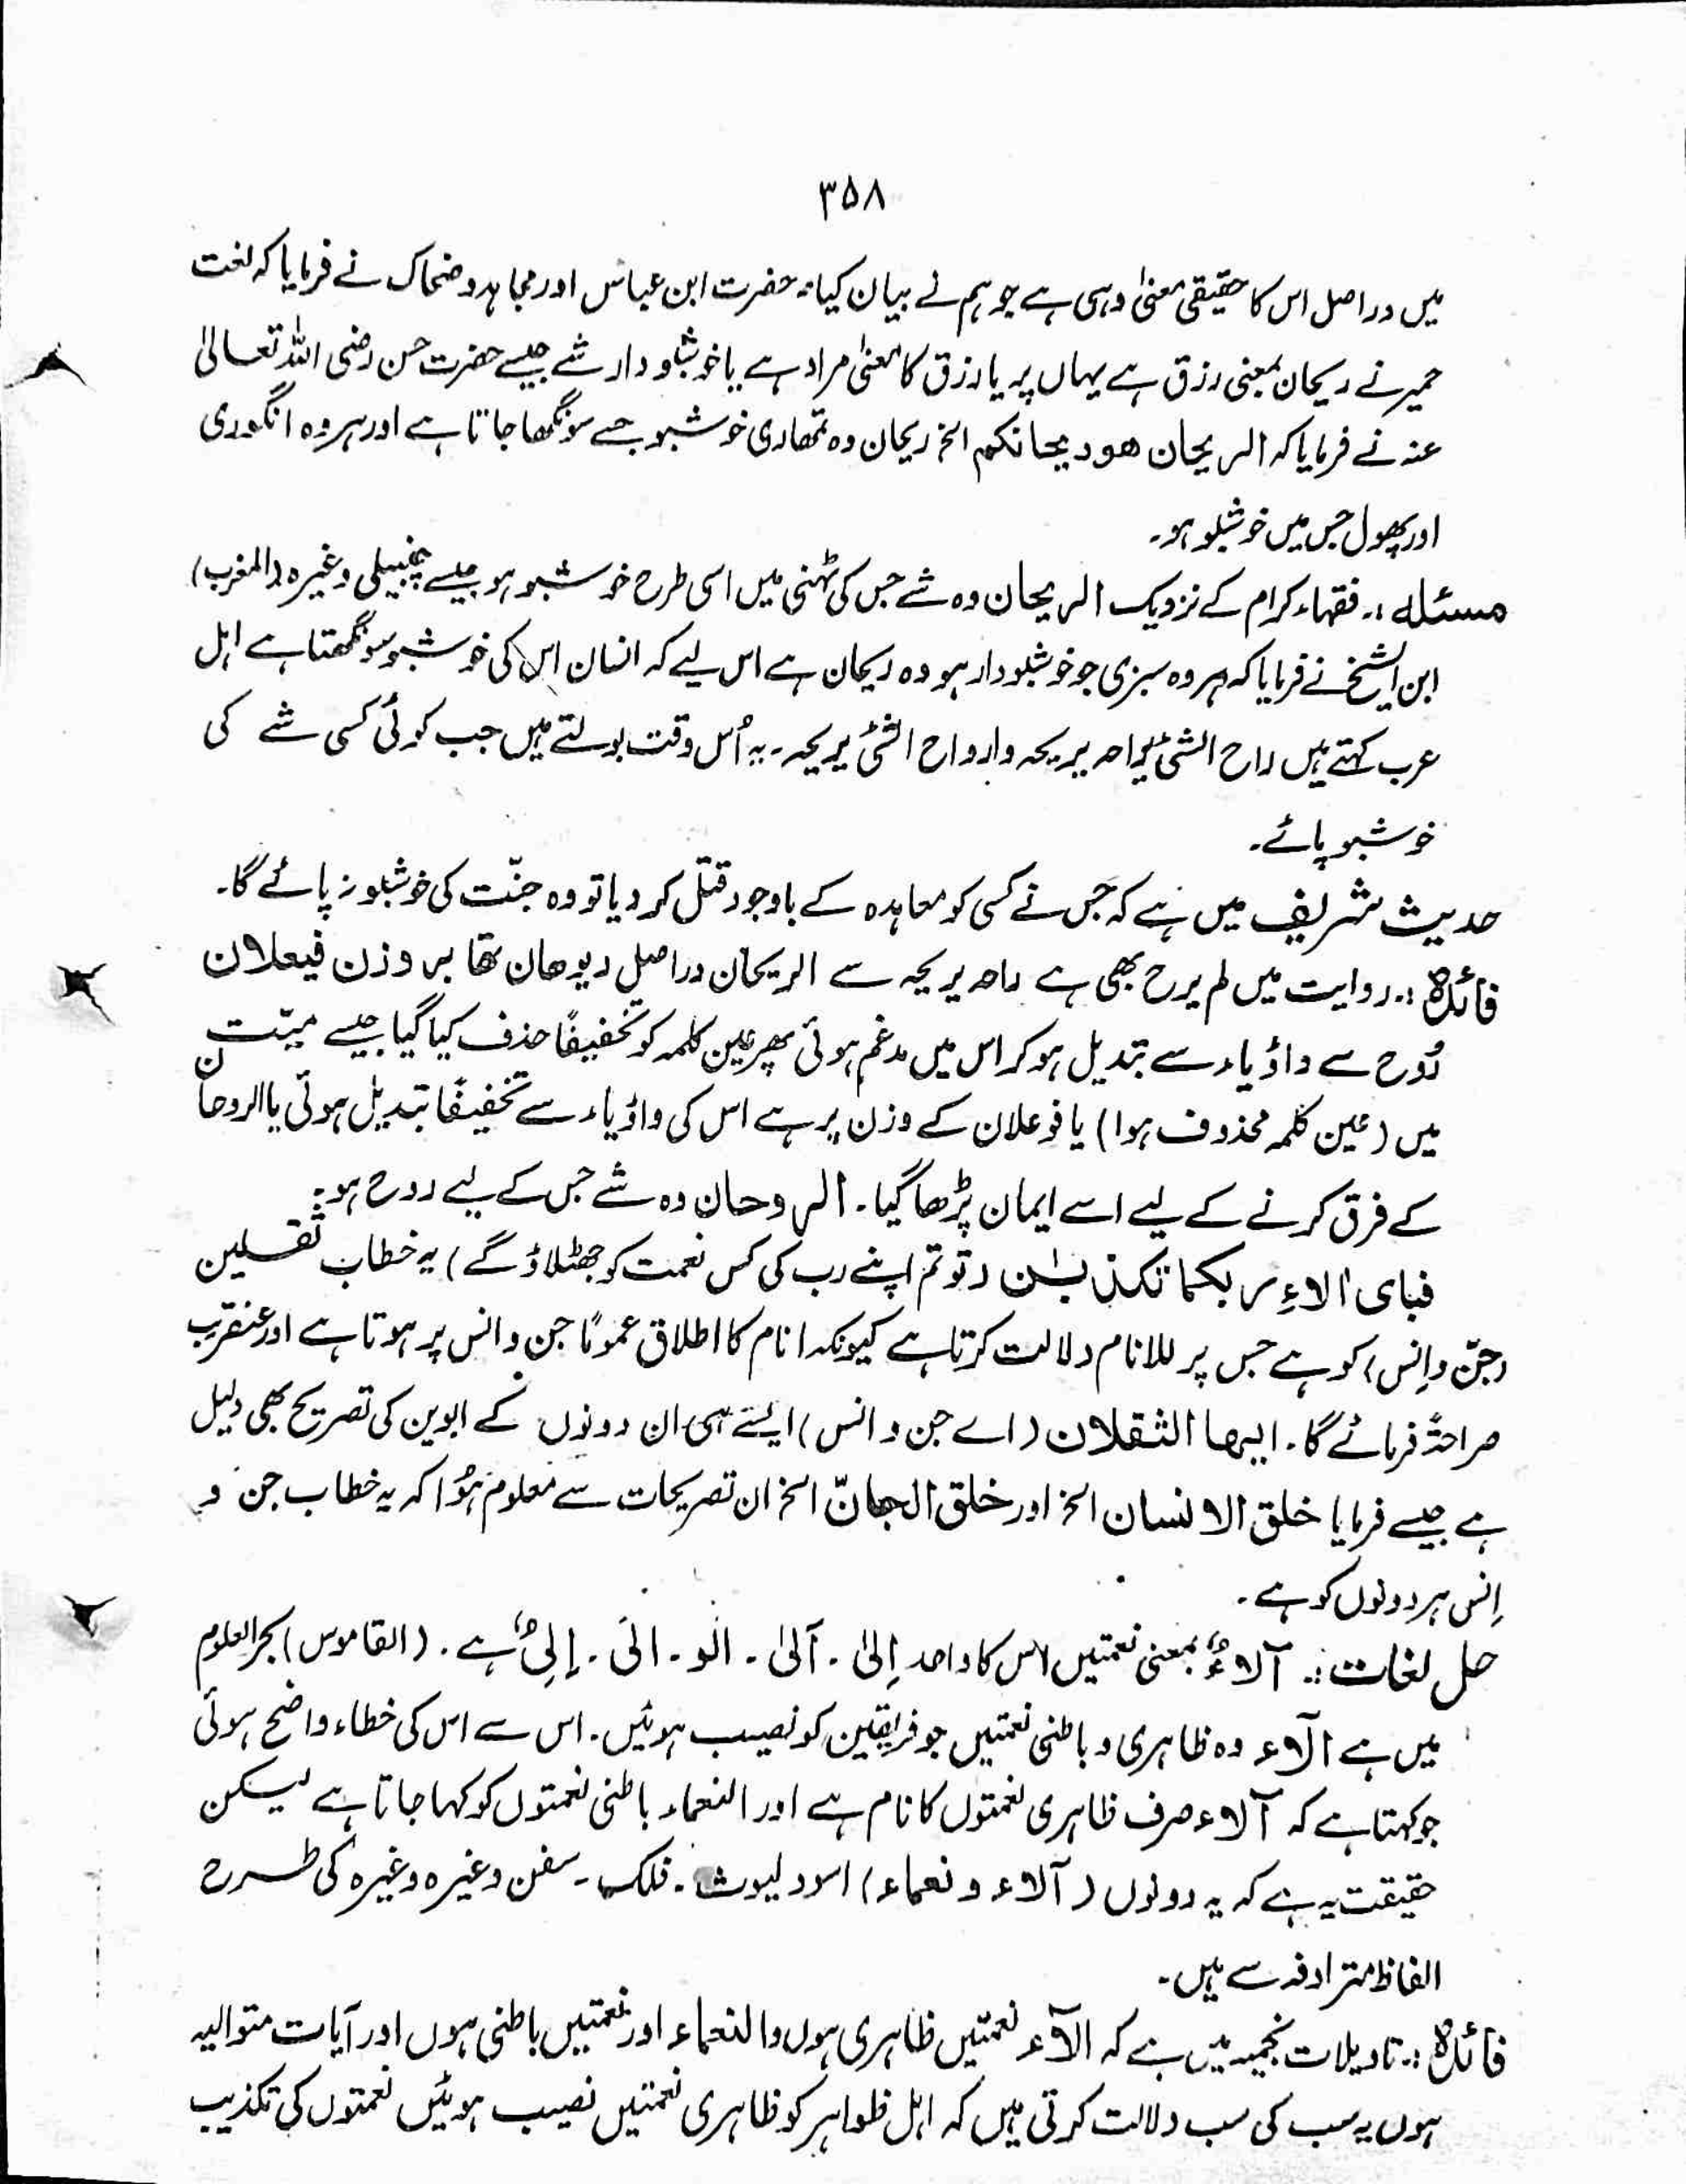 ۳۵۸
میں دراصل اس کا حقیقی معنیٰ وہی ہے جو ہم نے بیان کیا۔ حضرت ابن عباس اور مجاہد و ضحاک نے فرمایا کہ لغت
حمیر نے ریحان بمعنی رزق ہے یہاں پر یا رزق کا معنیٰ مراد ہے یا خوشبو دار شے جیسے حضرت حسن رضی اللہ تعالیٰ
عنہ نے فرمایا کہ الریحان ھو ریحانکم الخ ریحان وہ تمھاری خوشبو جسے سونگھا جاتا ہے اور ہر وہ انگوری
اور پھول جس میں خوشبو ہو۔
مسئلہ :۔ فقہاء کرام کے نزدیک الریحان وہ شے جس کی ٹہنی میں اسی طرح خوشبو ہو جیسے چنبیلی وغیرہ (المغرب)
ابن الشیخ نے فرمایا کہ ہر وہ سبزی جو خوشبودار ہو وہ ریحان ہے اس لیے کہ انسان اس کی خوشبو سونگھتا ہے اہل
عرب کہتے ہیں راح الشیٔ یراحہ یریحہ وارواح الشیٔ یریحہ۔ یہ اُس وقت بولتے ہیں جب کوئی کسی شے کی
خوشبو پائے۔
حدیث شریف میں ہے کہ جس نے کسی کو معاہدہ کے باوجود قتل کر دیا تو وہ جنّت کی خوشبو نہ پائے گا۔
فائدہ :۔ روایت میں لم یرح بھی ہے راحہ یریحہ سے الریحان دراصل ریوحان تھا بر وزن فیعلان
رُوح سے واؤ یاء سے تبدیل ہو کر اس میں مدغم ہوئی پھر عین کلمہ کو تخفیفًا حذف کیا گیا جیسے میّت
میں (عین کلمہ محذوف ہوا) یا فوعلان کے وزن پر ہے اس کی واؤ یاء سے تخفیفًا تبدیل ہوئی یا الروحان
کے فرق کرنے کے لیے اسے ایمان پڑھا گیا۔ الروحان وہ شے جس کے لیے روح ہو۔
فبای اٰلاءِ ربکما تکذبٰن (تو تم اپنے رب کی کس نعمت کو جھٹلاؤ گے) یہ خطاب ثقلین
(جنّ و اِنس) کو ہے جس پر للانام دلالت کرتا ہے کیونکہ انام کا اطلاق عمومًا جن و انس پر ہوتا ہے اور عنقریب
صراحۃً فرمائے گا۔ ایہا الثقلان (اے جن و انس) ایسے ہی ان دونوں کے ابوین کی تصریح بھی دلیل
ہے جیسے فرمایا خلق الانسان الخ اور خلق الجانّ الخ ان تصریحات سے معلوم ہُوا کہ یہ خطاب جن و
اِنس ہر دونوں کو ہے۔
حل لغات :۔ آلاءٌ بمعنی نعمتیں اس کا واحد اِلیٰ ۔ آلیٰ ۔ الو ۔ الی ۔ اِلیٌ ہے ۔ (القاموس) بحر العلوم
میں ہے آلاء وہ ظاہری و باطنی نعمتیں جو فریقین کو نصیب ہوئیں۔ اس سے اس کی خطاء واضح ہوئی
جو کہتا ہے کہ آلاء صرف ظاہری نعمتوں کا نام ہے اور النعماء باطنی نعمتوں کو کہا جاتا ہے لیکن
حقیقت یہ ہے کہ یہ دونوں (آلاء و نعماء) اسود لیوث ۔ فلک ۔ سفن وغیرہ وغیرہ کی طرح
الفاظ مترادفہ سے ہیں۔
فائدہ :۔ تاویلات نجمیہ میں ہے کہ الآء نعمتیں ظاہری ہوں والنعماء اور نعمتیں باطنی ہوں اور آیات متوالیہ
ہوں یہ سب کی سب دلالت کرتی ہیں کہ اہل ظواہر کو ظاہری نعمتیں نصیب ہوئیں نعمتوں کی تکذیب